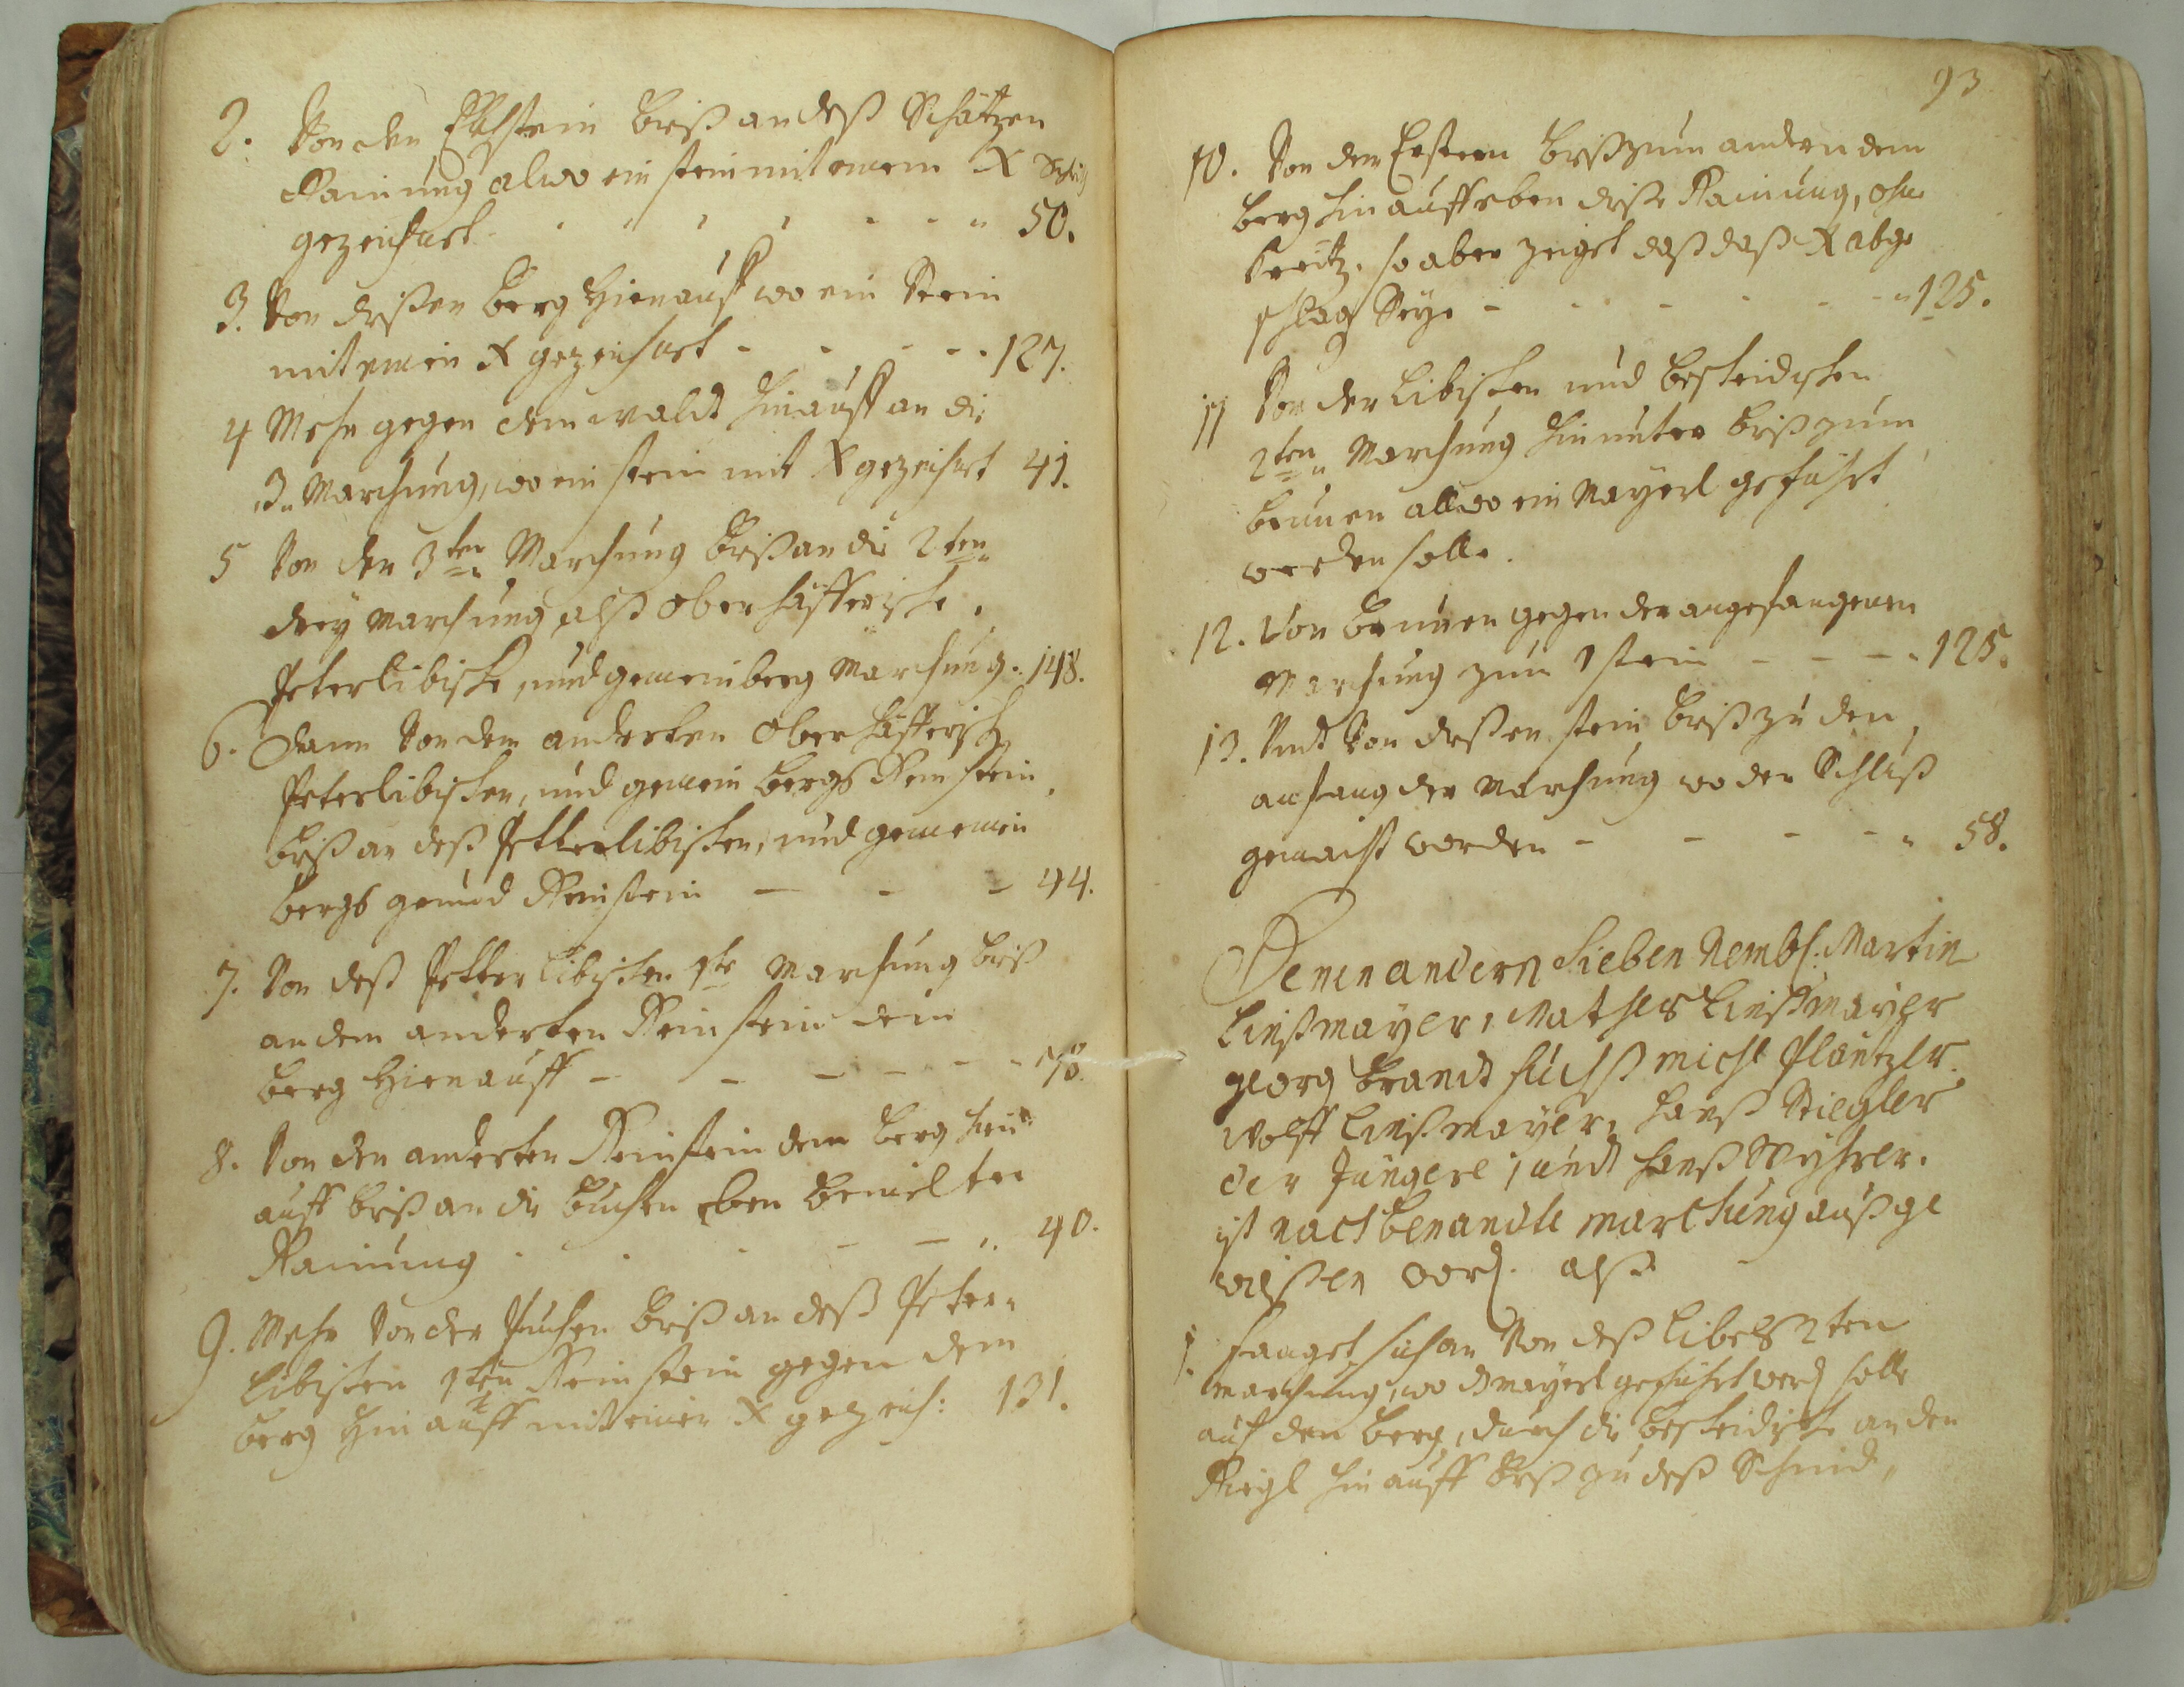 2. Von den Eckhstein biß an deß Schätzen
Rainung alwo ein stein mit einem X
gezeichnet - - - - - - 50.
3. Von dißen Berg hienauff wo ein Stein
mit einem X gezeichnet - - - - 127.
4 Mehr gegen dem waldt hinauff an die
3. Marchung, wo ein stein mit X gezeichnet 41.
5 Von der 3ten Marchung biß an die 2ten
drey Marchung, alß Oberhäfferische,
Peterlibische, und gemeinberg Marchung. 148.
6. Dann Von dem anderten Oberhäfferisch
Peterlibischen, und gemein bergs Rein stein,
biß an deß Petterlibischen, und gemeinen
bergs Reinstein - - - 44.
7. Von deß Petterlibischen 1te Marchung biß
an dem anderten Reinstein dem
berg hienauff - - - - - - 78.
8. Von den anderten Reinstein dem berg hin
auff biß an die buchen eben bemelter
Rainung - - - - - 40.
9. Mehr Von der Puchen biß an deß Peter
libischen 1ten Reinstein gegen dem
berg hinauff mit einen X gezeich: 131.
93
10. Von dem Ersteren biß zum andern dem
berg hinauff eben diße Rainung, ohne
Creitz, so aber zeiget daß daß X abge
schlag Seye - - - - - - 125.
11 Von der Libischen und beskeidischen
2ten Marchung hinunter biß zum
brunen allwo ein Mayerl geführt
werden solle.
12. Von brunen gegen der angefangenen
Marchung zum 1 stein - - - - 125.
13. Und Von dißen stein biß zu den
anfang der Marchung wo der Schluß
gemacht worden - - - - - 58.
Denen andern Sieben Nembl: Martin
Linßmayer, Mathes Linßmayer
georg brandt fuchß michl Pläntzler
Wolff Linßmayer, hanß Stiegler
der Jüngere, und hanß
ist nachbenandte marchung außge
wißen word. alß
1. fanget sich an Von deß Libels 2ten
marchung, wo d mayerl geführt werd solle
auf den berg, durch die beskeidische an den
Riegl hinauff biß zu deß Schmid,